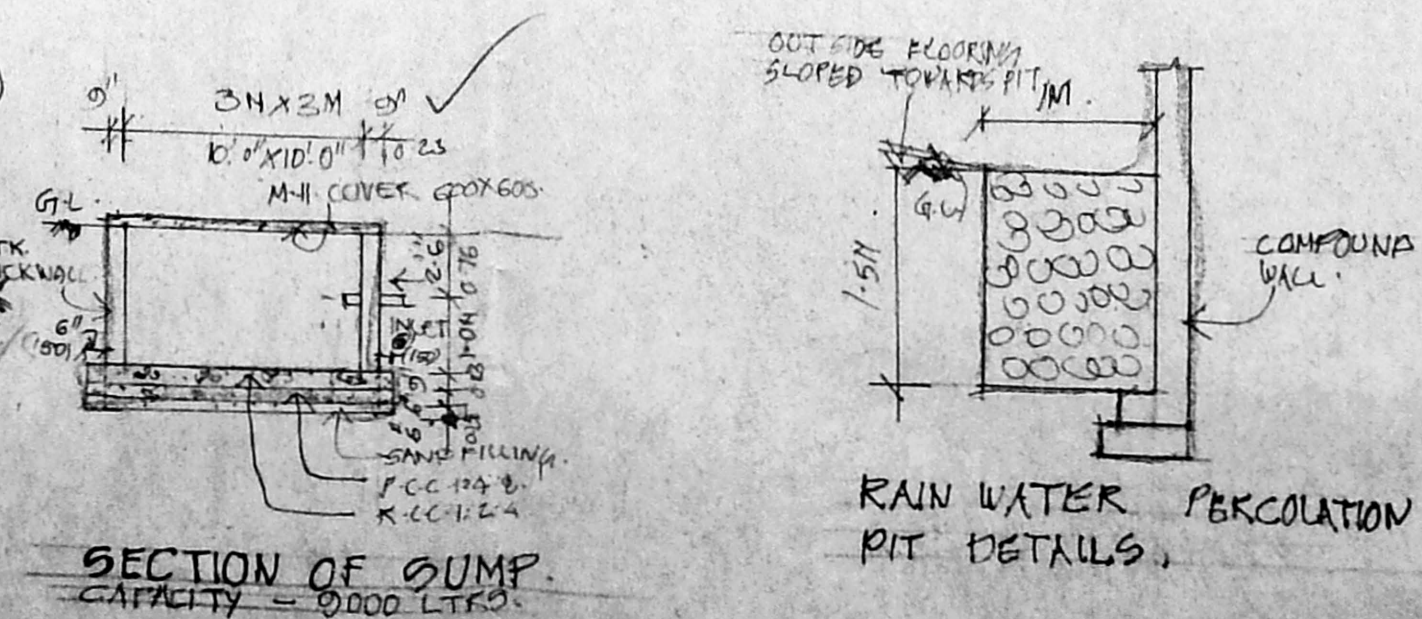 9"
3M X 3M
9"
10'.0"X10'.0"
0.23
M.H. COVER 600X600.
G.L.
TK.
CKWALL
6"
(150)
2'.6"
0.76
(150)
SAND FILLING.
P.C.C 1:4:8.
R.C.C 1:2:4
SECTION OF SUMP.
CAPACITY - 9000 LTRS.
OUT SIDE FLOORING
SLOPED TOWARDS PIT
1M.
G.L
1.5M
COMPOUND
WALL.
RAIN WATER PERCOLATION
PIT DETAILS.